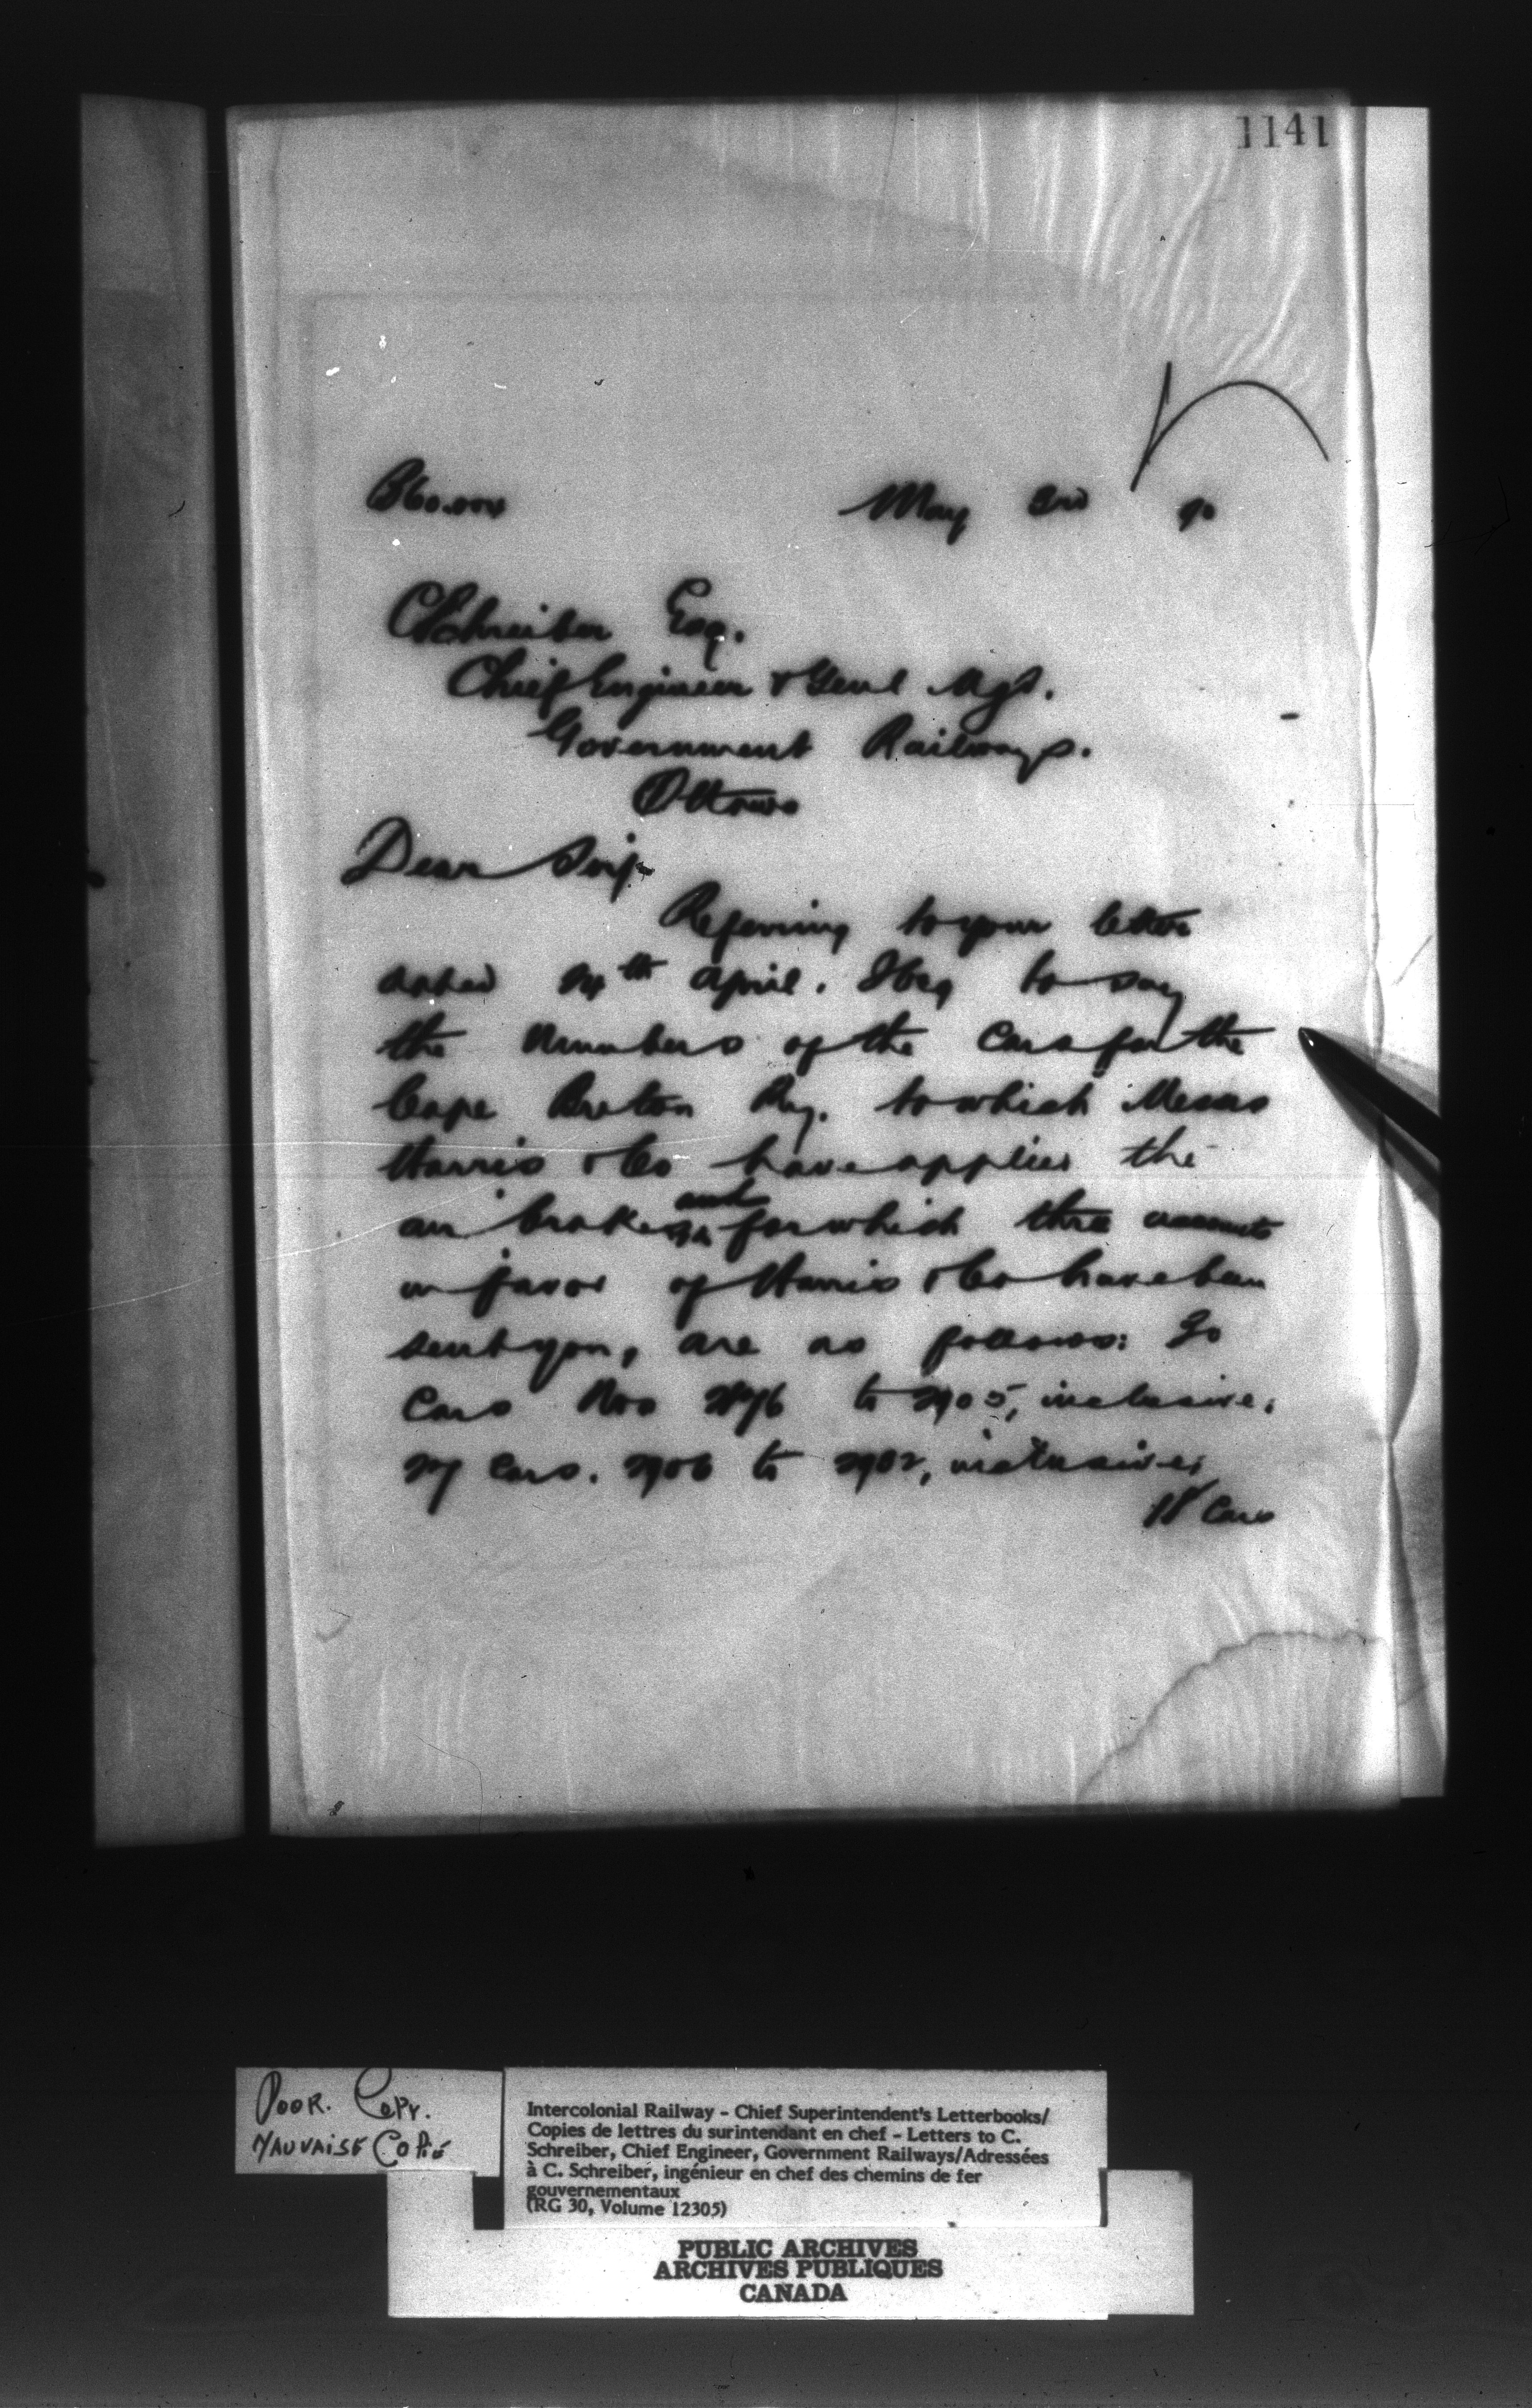 1141
May 3rd 90
C Schreiber Esq.
Chief Engineer & Genl Mgr.
Government Railways.
Ottawa
Dear Sir,
Referring to your letter
dated 24th April. I beg to say
the numbers of the Cars for the
Cape Breton Ry. to which Messrs
Harris & Co have applied the
air brakes and for which three accounts
in favor of Harris & Co have been
sent you, are as follows: 30
Cars Nos 2876 to 2905, inclusive.
27 Cars. 2906 to 2932, inclusive;
18 Cars
POOR. COPY.
MAUVAISE COPIE
Intercolonial Railway - Chief Superintendent's Letterbooks/
Copies de lettres du surintendant en chef - Letters to C.
Schreiber, Chief Engineer, Government Railways/Adressées
à C. Schreiber, ingénieur en chef des chemins de fer
gouvernementaux
(RG 30, Volume 12305)
PUBLIC ARCHIVES
ARCHIVES PUBLIQUES
CANADA